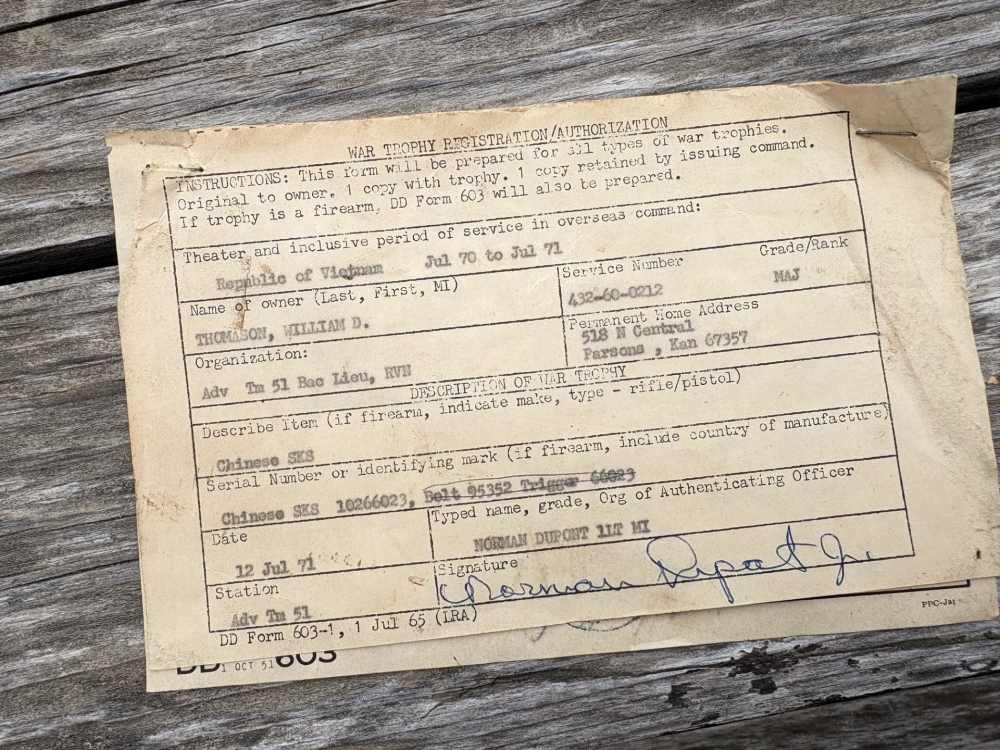 WAR TROPHY REGISTRATION/AUTHORIZATION
INSTRUCTIONS: This form will be prepared for all types of war trophies.
Original to owner. 1 copy with trophy. 1 copy retained by issuing command.
If trophy is a firearm, DD Form 603 will also be prepared.
Theater and inclusive period of service in overseas command:
Republic of Vietnam Jul 70 to Jul 71
Name of owner (Last, First, MI)
THOMASON, WILLIAM D.
Service Number
432-60-0212
Grade/Rank
MAJ
Organization:
Adv Tm 51 Bac Lieu, RVN
Permanent Home Address
518 N Central
Parsons , Kan 67357
DESCRIPTION OF WAR TROPHY
Describe Item (if firearm, indicate make, type - rifle/pistol)
Chinese SKS
Serial Number or identifying mark (if firearm, include country of manufacture)
Chinese SKS 10266023, Bolt 95352 Trigger 66023
Date
12 Jul 71
Typed name, grade, Org of Authenticating Officer
NORMAN DUPONT 1LT MI
Station
Adv Tm 51
Signature
Norman Dupont Jr.
DD Form 603-1, 1 Jul 65 (LRA)
PPC-Jap
DD 1 OCT 51 603